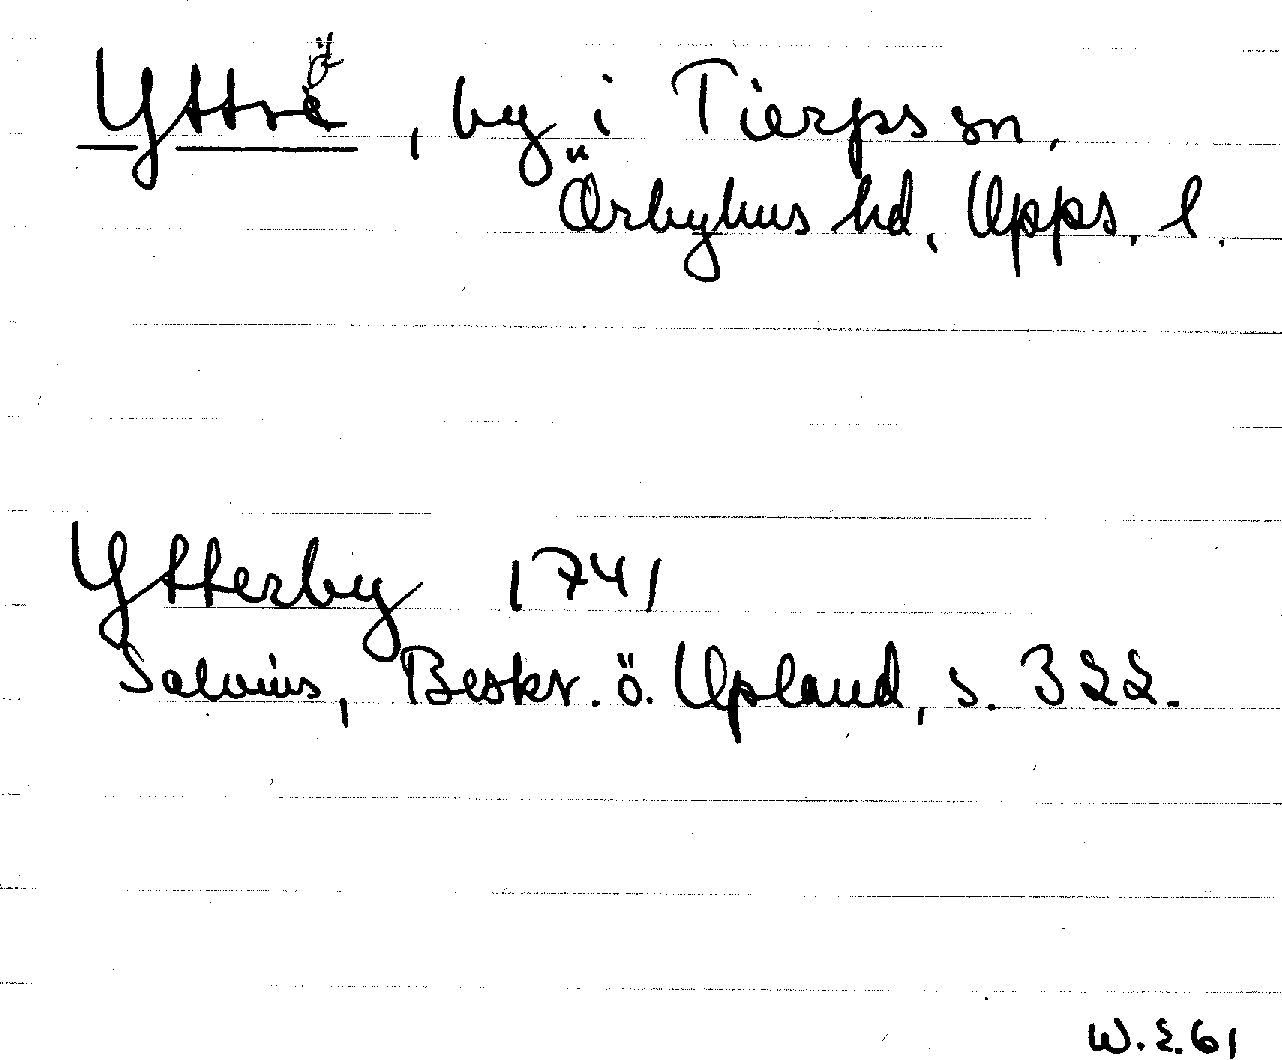 Yttrö, by i Tierps sn,
Örbyhus hd, Upps. l.
Ytterby 1741
Salvius, Beskr. ö. Upland, s. 322.
W.E. 61